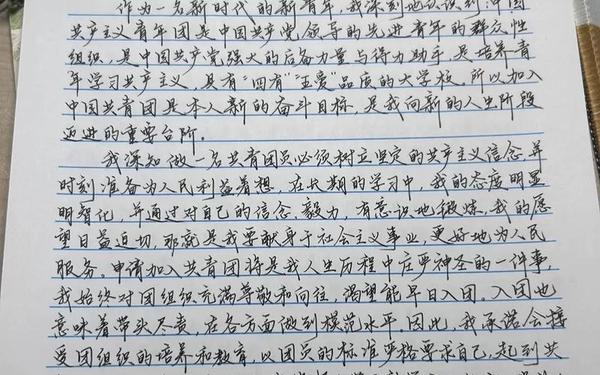 作为一名新时代的新青年,我深刻地认识到:中国
共产主义青年团是中国共产党领导的先进青年的群众性
组织,是中国共产党强大的后备力量与得力助手,是培养青
年学习共产主义,具有“四有”“五爱”品质的大学校。所以加入
中国共青团是本人新的奋斗目标,是我向新的人生阶段
迈进的重要台阶。
我深知做一名共青团员必须树立坚定的共产主义信念,并
时刻准备为人民利益着想。在长期的学习中,我的态度明显
明智化,并通过对自己的信念、毅力,有意识地锻炼,我的愿
望日益迫切,那就是我要献身于社会主义事业,更好地为人民
服务。申请加入共青团将是我人生历程中庄严神圣的一件事,
我始终对团组织充满尊敬和向往,渴望能早日入团。入团也
意味着带头尽责,在各方面做到模范水平。因此,我承诺会接
受团组织的培养和教育,以团员的标准严格要求自己,起到共